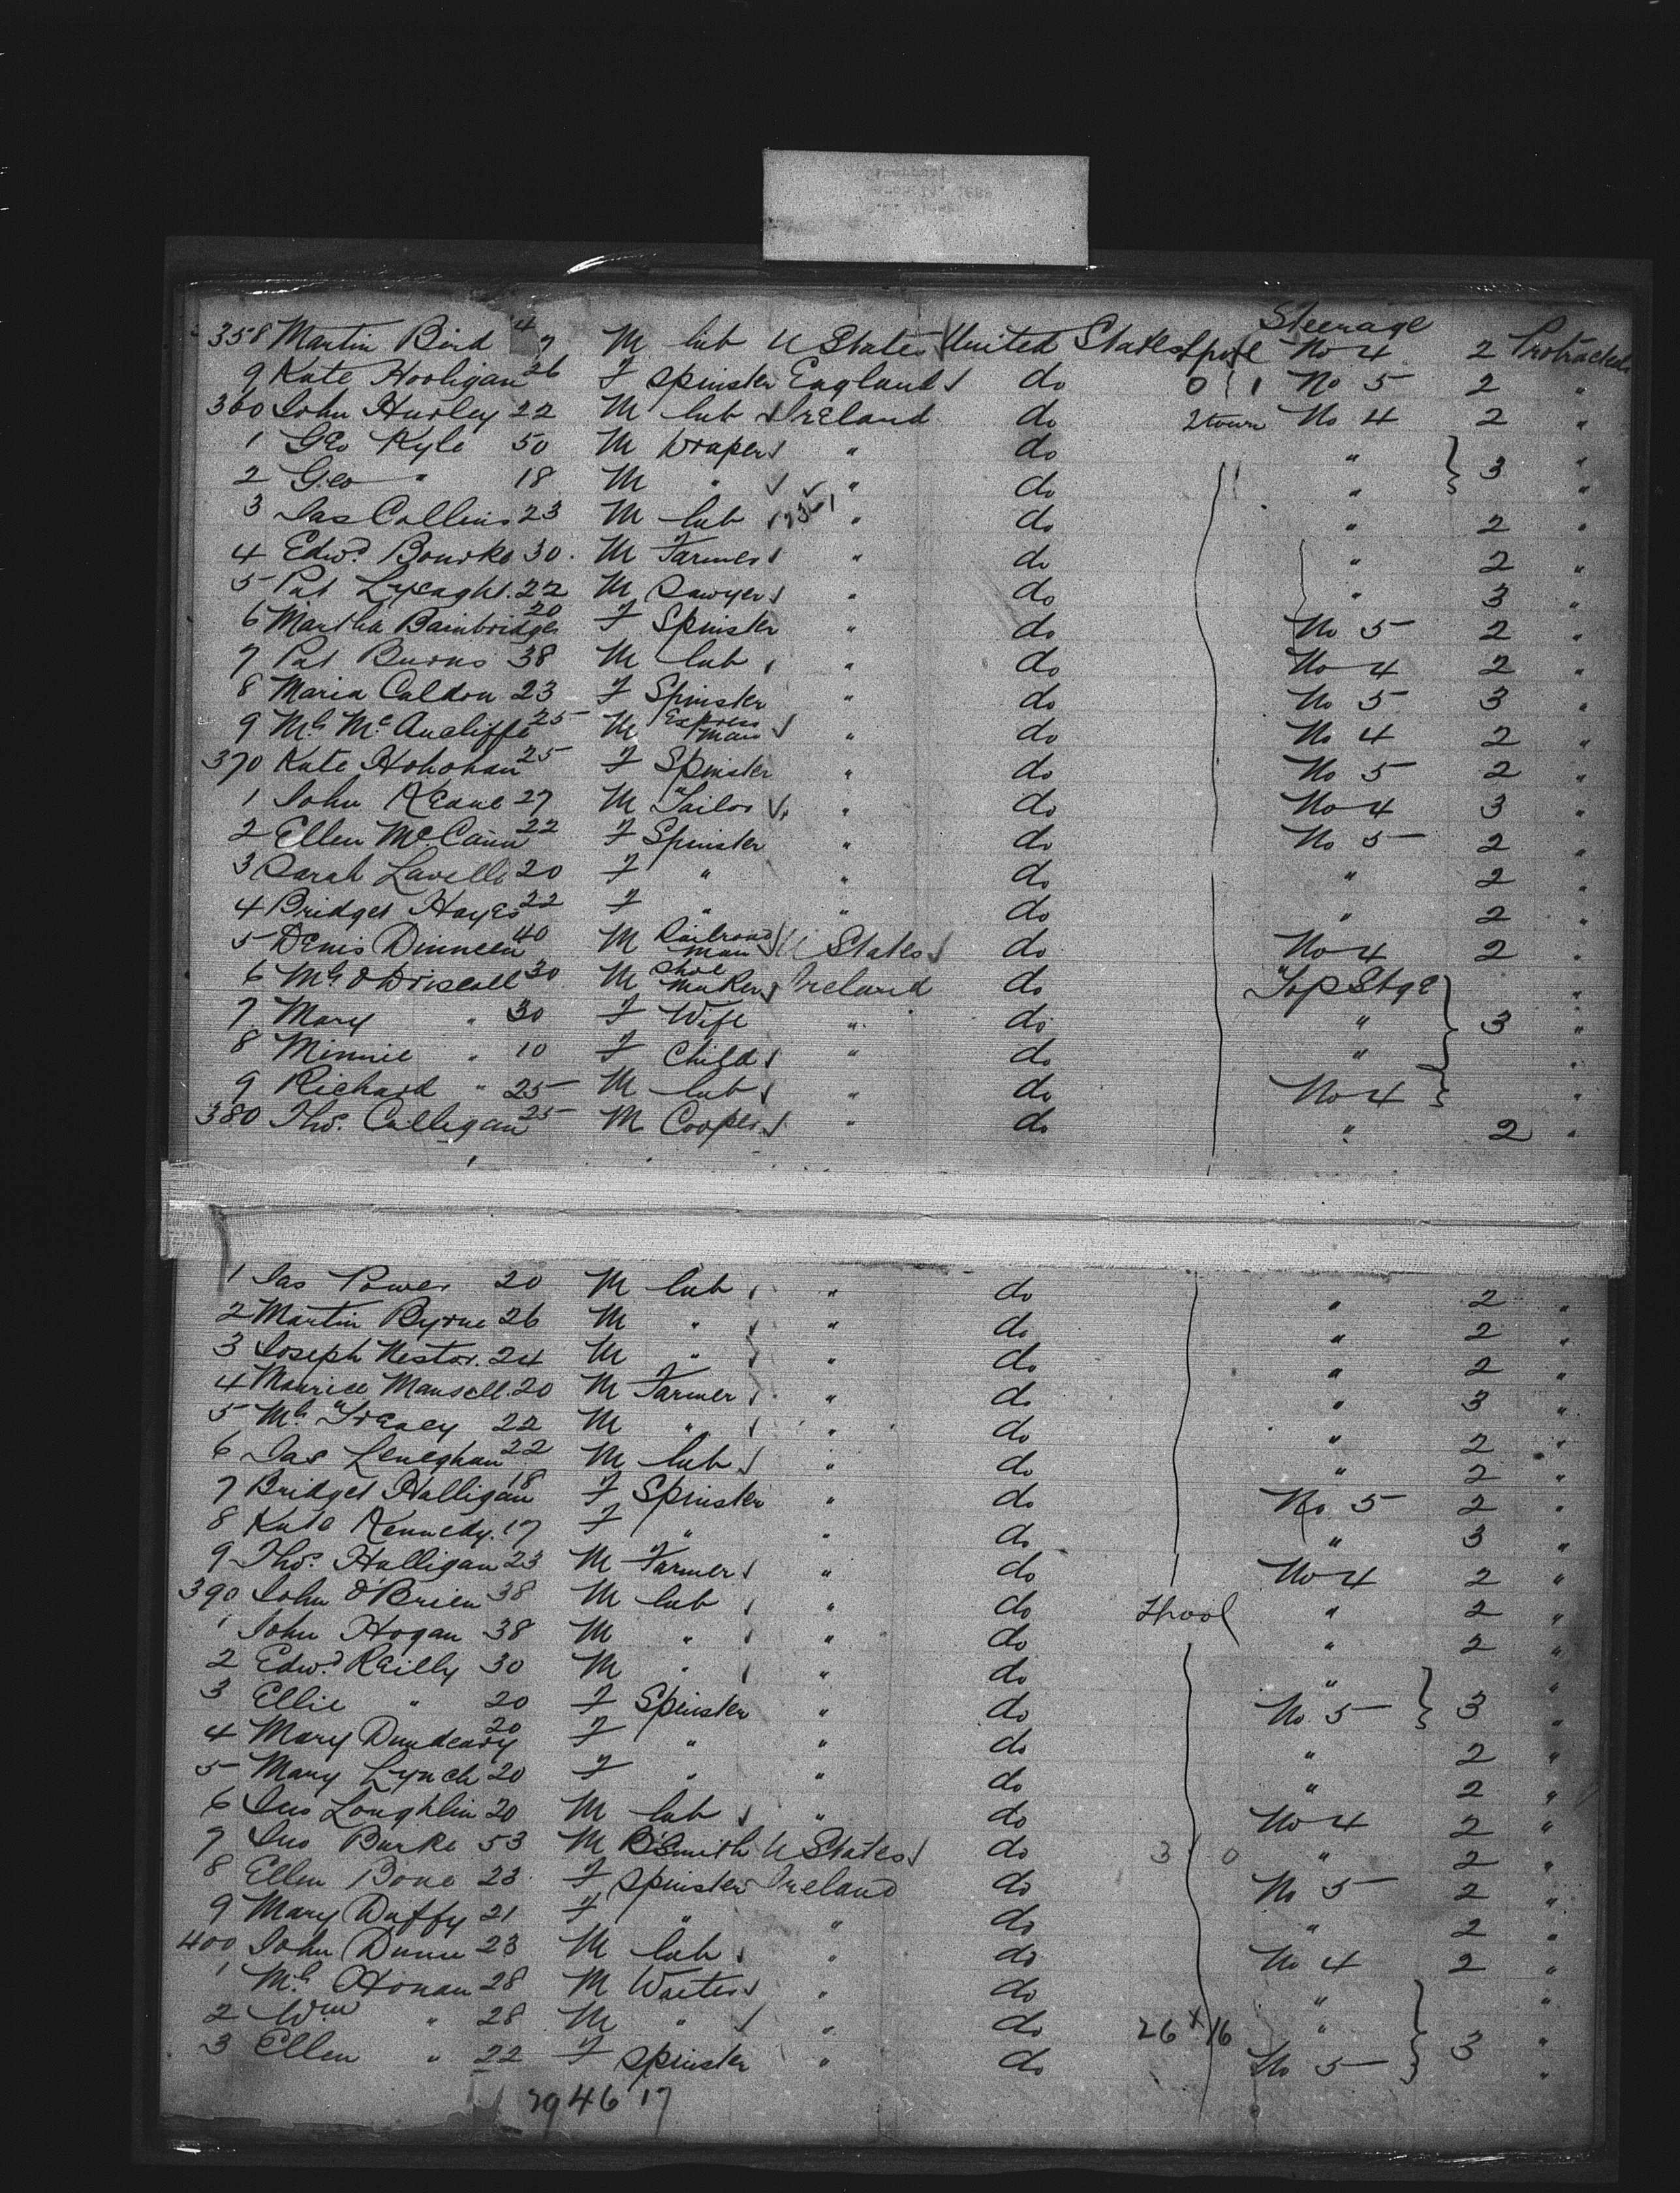 Steerage
358 Martin Bird 47 M lab U States United States Lpool No 4 2 Protracted
9 Kate Hooligan 26 F Spinster England do 0 1 No 5 2 "
360 John Hurley 22 M lab Ireland do 2town No 4 2 "
1 Geo Kyle 50 M Draper " do " 3 "
2 Geo " 18 M " " do " "
3 Jas Collins 23 M lab " do " 2 "
4 Edwd. Bourke 30 M Farmer " do " 2 "
5 Pat Lyeaght. 22 M Sawyer " do " 3 "
6 Martha Bainbridge 20 F Spinster " do No 5 2 "
7 Pat Burns 38 M lab " do No 4 2 "
8 Maria Caldon 23 F Spinster " do No 5 3 "
9 Ml. Mc. Aucliffe 25 M Express Man " do No 4 2 "
370 Kate Hohohan 25 F Spinster " do No 5 2 "
1 John Keane 27 M Tailor " do No 4 3 "
2 Ellen McCann 22 F Spinster " do No 5 2 "
3 Sarah Lavelle 20 F " " do " 2 "
4 Bridget Hayes 22 F " " do " 2 "
5 Denis Dinneen 40 M Railroad man U States do No 4 2 "
6 Ml. O'Driscoll 30 M Shoe maker Ireland do Top Stge "
7 Mary " 30 F Wife " do " 3 "
8 Minnie " 10 F Child " do " "
9 Richard " 25 M lab " do No 4 "
380 Thos. Culligan 25 M Cooper " do " 2 "
1 Jas Power 20 M lab " do " 2 "
2 Martin Byrne 26 M " " do " 2 "
3 Joseph Nestor. 24 M " " do " 2 "
4 Maurice Mansell. 20 M Farmer " do " 3 "
5 Ml. Treacy 22 M " " do " 2 "
6 Jas Leneghan 22 M lab " do " 2 "
7 Bridget Halligan 18 F Spinster " do No 5 2 "
8 Kate Kennedy. 17 F " " do " 3 "
9 Thos. Halligan 23 M Farmer " do No 4 2 "
390 John O'Brien 38 M lab " do Lpool " 2 "
1 John Hogan 38 M " " do " 2 "
2 Edwd. Reilly 30 M " " do " "
3 Ellie " 20 F Spinster " do No 5 3 "
4 Mary Dundeary 20 F " " do " 2 "
5 Mary Lynch 20 F " " do " 2 "
6 Jno Loughlin 20 M lab " do No 4 2 "
7 Jno Burke 53 M B'Smith U States do 3 0 " 2 "
8 Ellen Bone 23 F Spinster Ireland do No 5 2 "
9 Mary Duffy 21 F " " do " 2 "
400 John Dunn 23 M lab " do No 4 2 "
1 Ml. Honan 28 M Waiter " do " "
2 Wm " 28 M " " do 26 x 16 " 3 "
3 Ellen " 22 F Spinster " do No 5 "
29 46 17